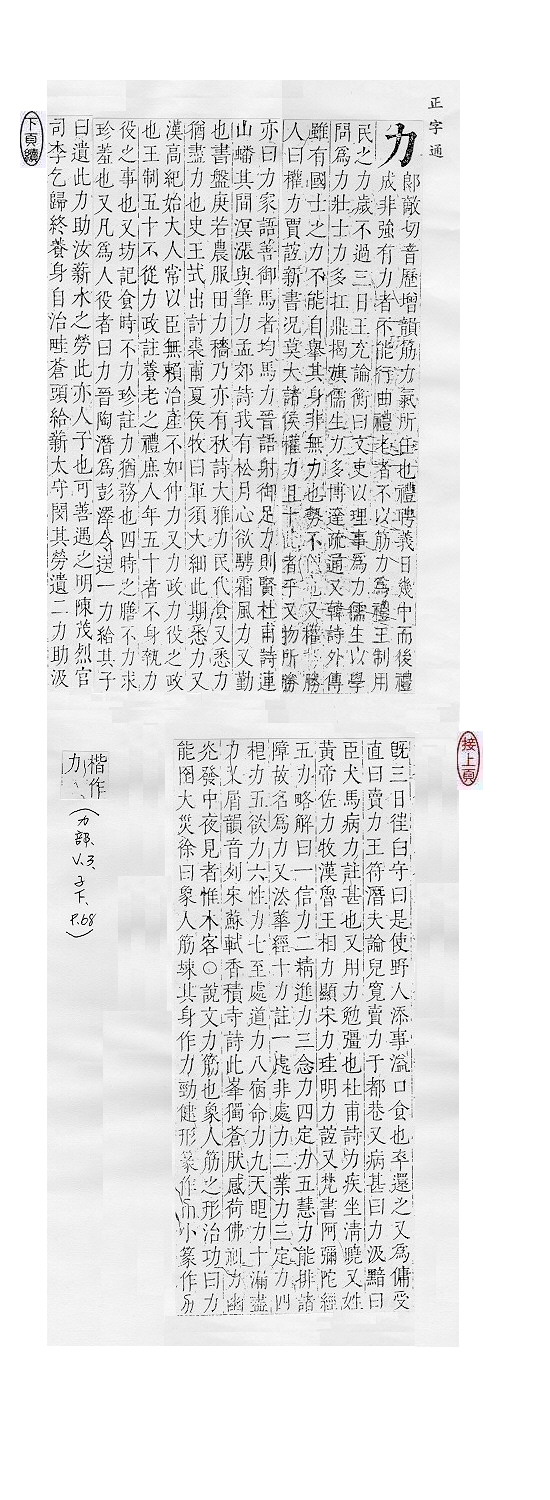 正字通
力 郎敵切音歷增韻筋力氣所任也禮聘義日幾中而後禮
成非強有力者不能行曲禮老者不以筋力為禮王制用
民之力歲不過三日王充論衡曰文吏以理事為力儒生以學
問為力壯士力多扛鼎揭旗儒生力多博達疏通又韓詩外傳
雖有國士之力不能自舉其身非無力也勢不便也又權勝
人曰權力賈誼新書況莫大諸侯權力且十此者乎又物所勝
亦曰力家語善御馬者均馬力晉語射御足力則賢杜甫詩連
山蟠其間溟漲與筆力孟郊詩我有松月心欲騁霜風力又勤
也書盤庚若農服田力穡乃亦有秋詩大雅力民代食又悉力
猶盡力也史王式出討裘甫夏侯牧曰軍須大細此期悉力又
漢高紀始大人常以臣無賴治產不如仲力又力政力役之政
也王制五十不從力政註養老之禮庶人年五十者不身執力
役之事也又坊記食時不力珍註力猶務也四時之膳不力求
珍羞也又凡為人役者曰力晉陶潛為彭澤令送一力給其子
曰遺此力助汝薪水之勞此亦人子也可善遇之明陳茂烈官
司李乞歸終養身自治畦蒼頭給薪太守閔其勞遺二力助汲
下頁續
接上頁
既三日徃白守曰是使野人添事溢口食也卒還之又為傭受
直曰賣力王符潛夫論兒寬賣力于都巷又病甚曰力汲黯曰
臣犬馬病力註甚也又用力勉彊也杜甫詩力疾坐清曉又姓
黃帝佐力牧漢魯王相力顯宋力珪明力誼又梵書阿彌陀經
五力略解曰一信力二精進力三念力四定力五慧力能排諸
障故名為力又法華經十力註一處非處力二業力三定力四
根力五欲力六性力七至處道力八宿命力九天眼力十漏盡
力又屑韻音列宋蘇軾香積寺詩此峯獨蒼然感荷佛祖力幽
光發中夜見者惟木客〇說文力筋也象人筋之形治功曰力
能圉大災徐曰象人筋竦其身作力勁健形篆作小篆作
楷作力
(力部、V.3、子下、P.68)